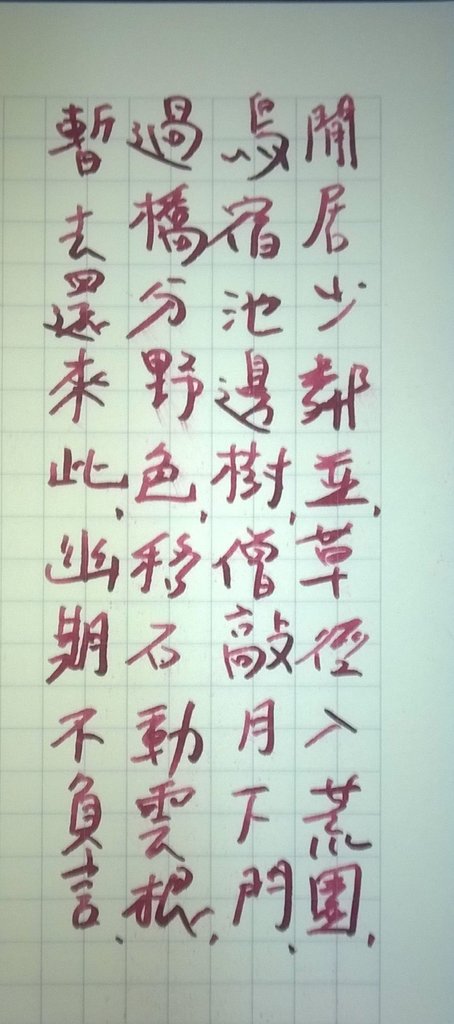 閒居少鄰並,草徑入荒園,
鳥宿池邊樹,僧敲月下門,
過橋分野色,移石動雲根,
暫去還來此,幽期不負言,